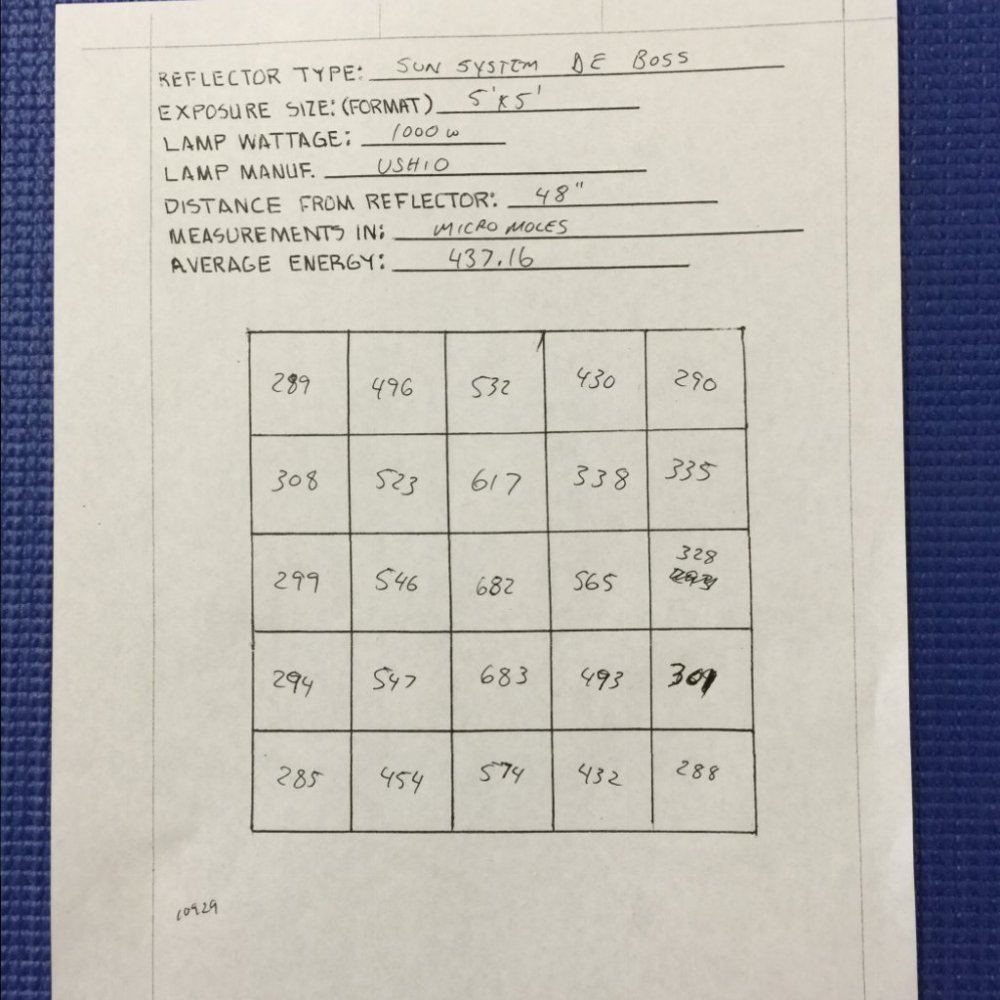 REFLECTOR TYPE: SUN SYSTEM DE BOSS
EXPOSURE SIZE: (FORMAT) 5'x5'
LAMP WATTAGE: 1000 W
LAMP MANUF. USHIO
DISTANCE FROM REFLECTOR: 48"
MEASUREMENTS IN: MICRO MOLES
AVERAGE ENERGY: 437.16
289 496 532 430 290
308 523 617 338 335
299 546 682 565 328
294 547 683 493 301
285 454 574 432 288
10929